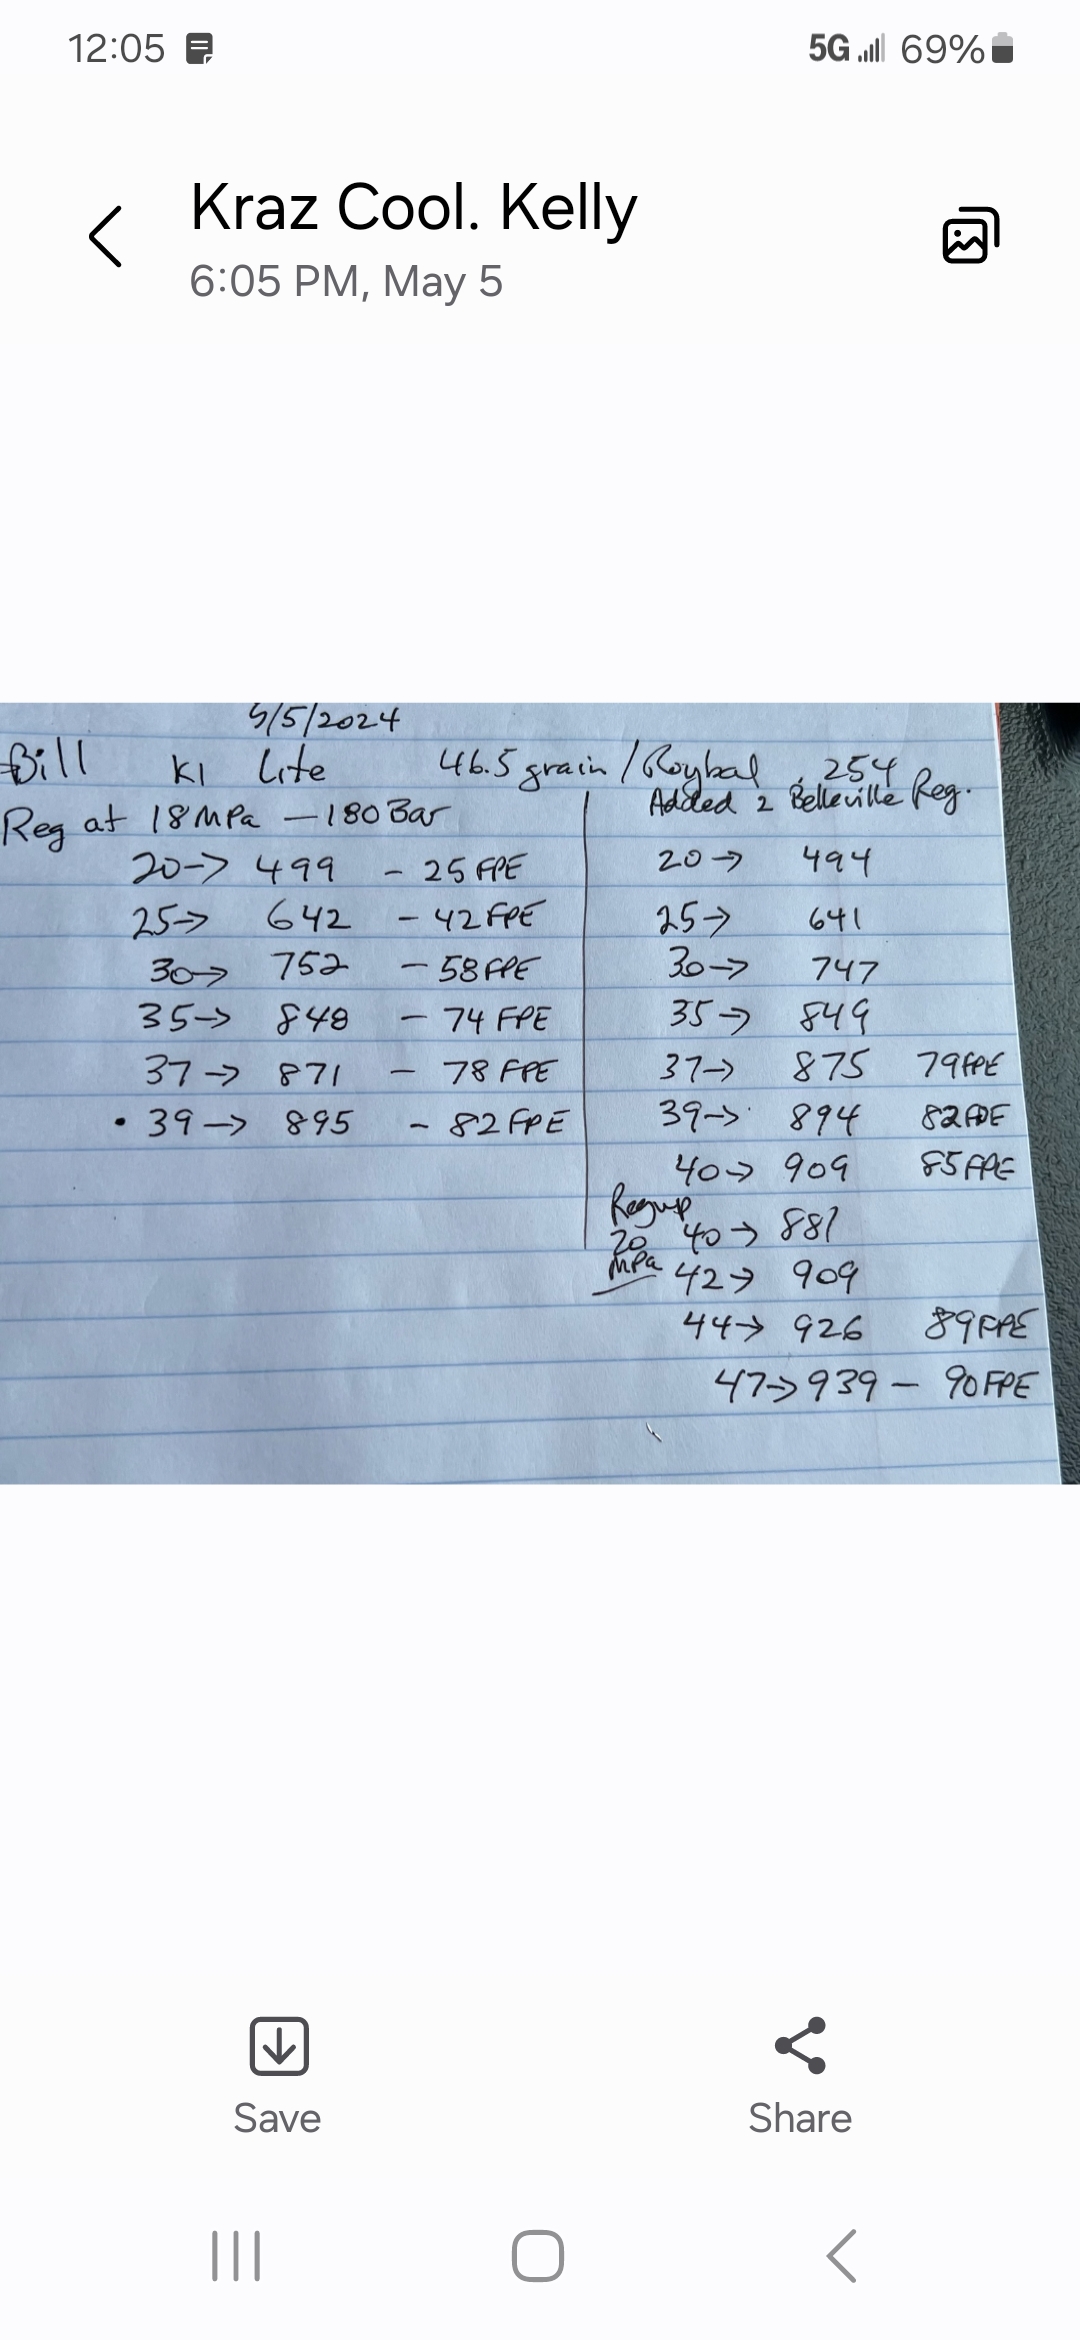 12:05 5G 69%
Kraz Cool. Kelly
6:05 PM, May 5
5/5/2024
Bill K1 Lite 46.5 grain / Roybal .254
Reg at 18 MPa - 180 Bar
20 → 499 - 25 FPE
25 → 642 - 42 FPE
30 → 752 - 58 FPE
35 → 848 - 74 FPE
37 → 871 - 78 FPE
• 39 → 895 - 82 FPE
Added 2 Belleville Reg.
20 → 494
25 → 641
30 → 747
35 → 849
37 → 875 79 FPE
39 → 894 82 FPE
40 → 909 85 FPE
Reg up
20 MPa
40 → 881
42 → 909
44 → 926 89 FPE
47 → 939 - 90 FPE
Save
Share